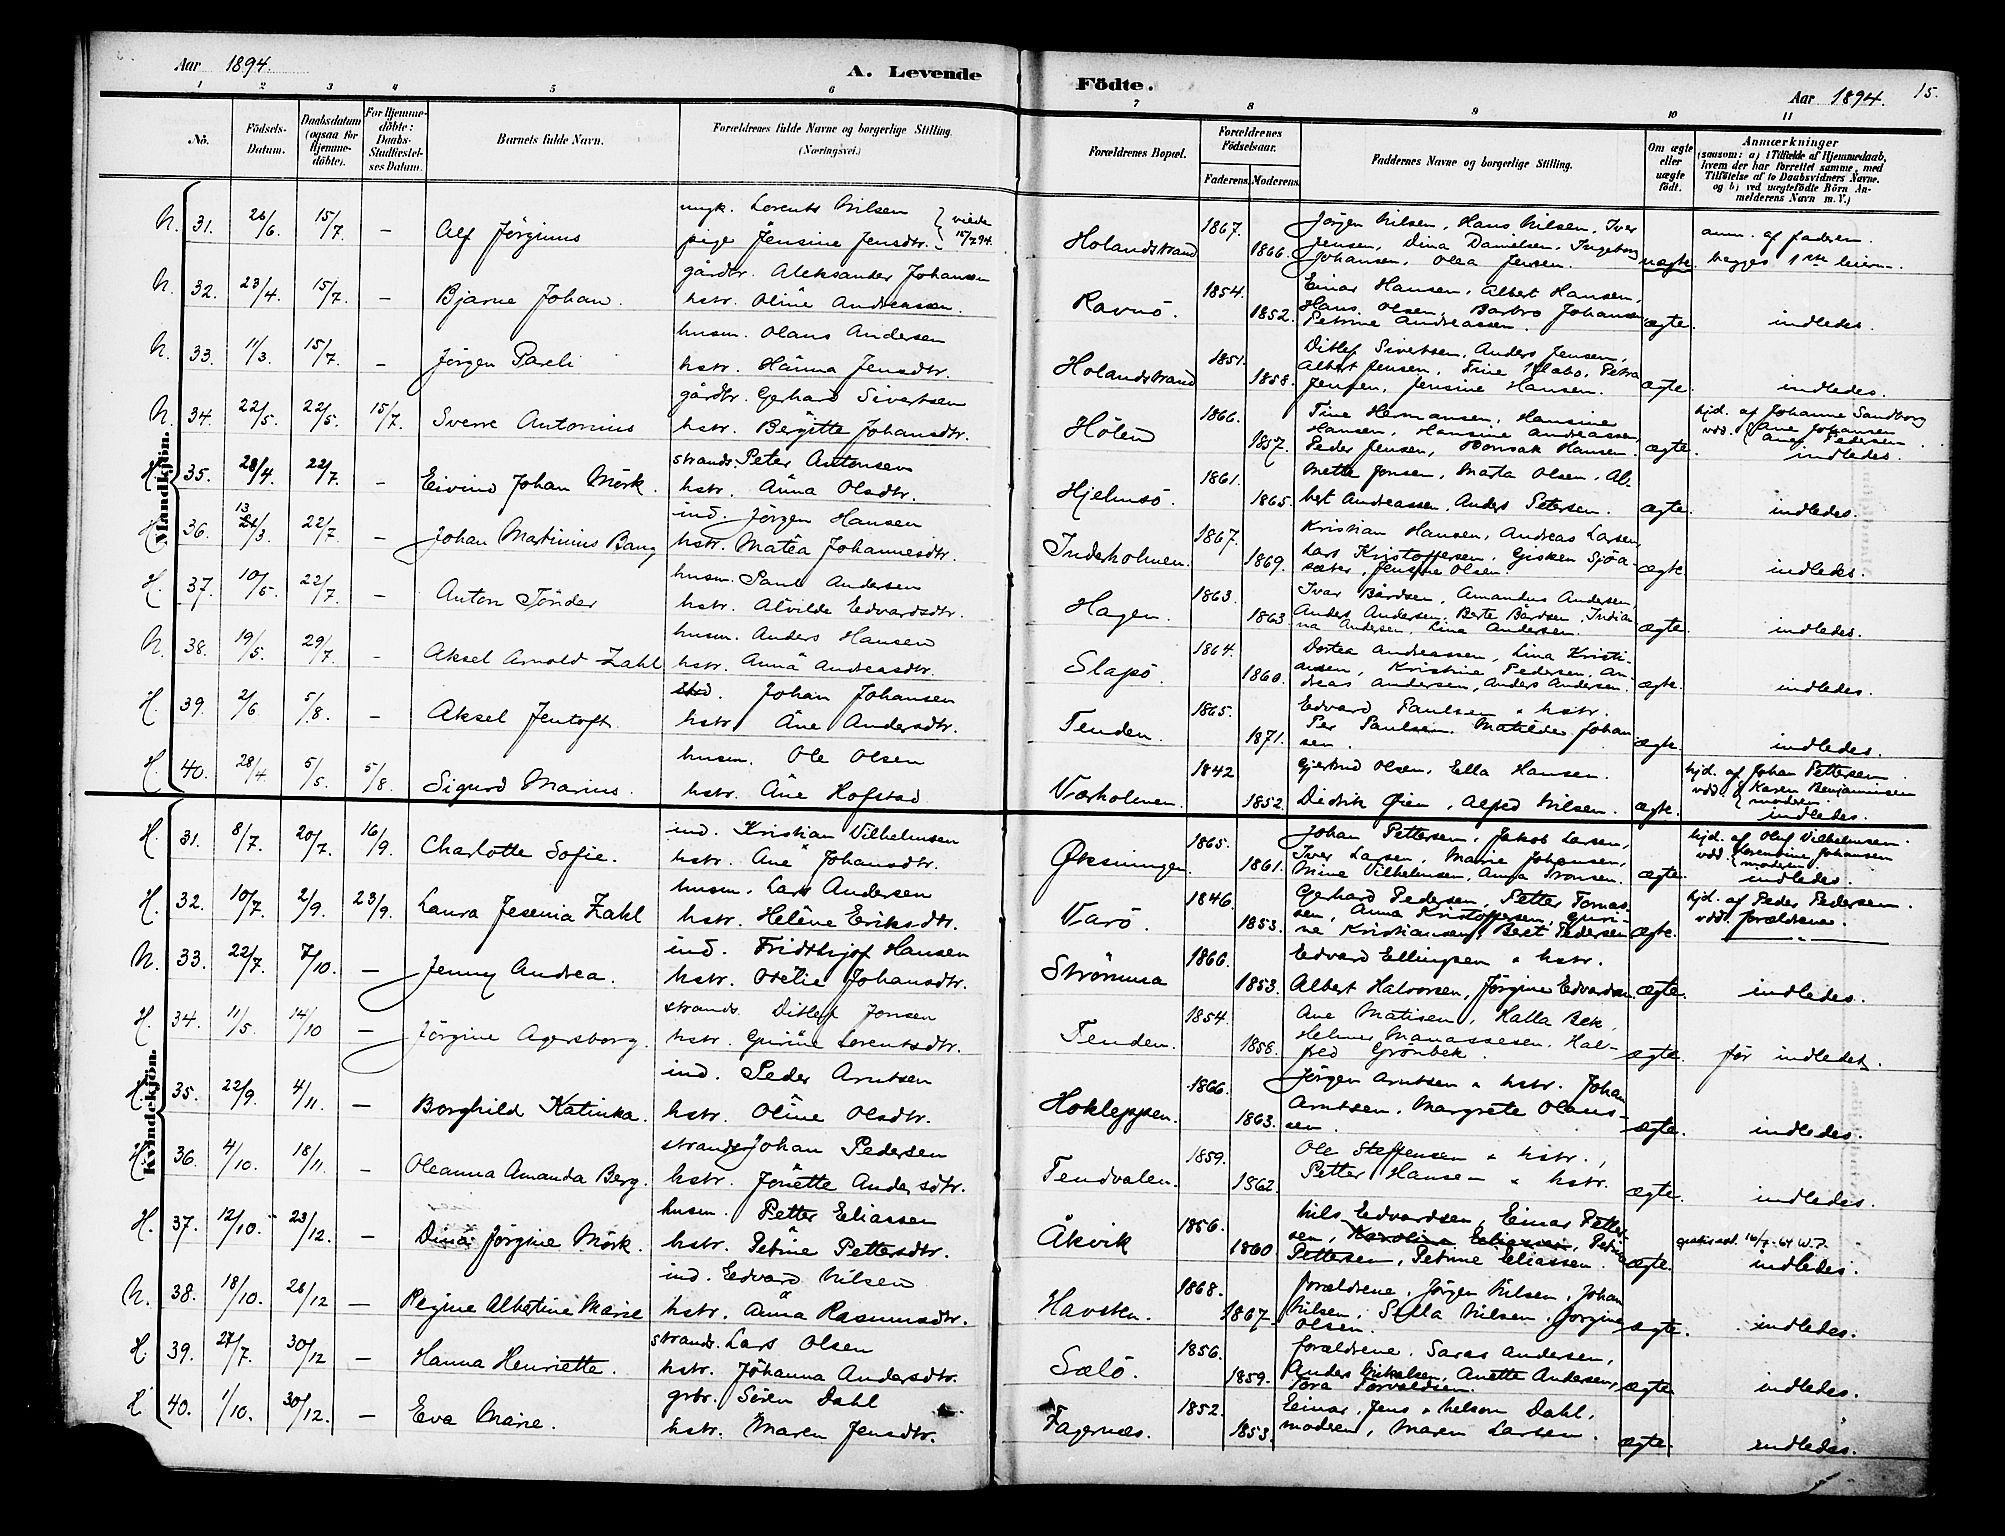 Aar 1894.
A. Levende
Födte.
Aar 1894.
15.
1 2 3 4 5 6 7 8 9 10 11
No.
Födsels-Datum.
Daabsdatum (ogsaa for Hjemme-döbte).
For Hjemme-döbte: Daabs-Stadfæstel-ses Datum.
Barnets fulde Navn.
Forældrenes fulde Navne og borgerlige Stilling. (Næringsvei.)
Forældrenes Bopæl.
Forældrenes Födselsaar.
Faderens. Moderens.
Faddernes Navne og borgerlige Stilling.
Om ægte eller uægte födt.
Anmærkninger (saasom: a) i Tilfælde af Hjemmedaab, hvem der har forrettet samme, med Tilföielse af to Daabsvidners Navne, og b) ved uægtefödte Börn An-melderens Navn m. V.)
Mandkjön.
N. 31. 26/6 15/7. – Alf Jörginus
ungk. Lorents Nilsen
pige Jensine Jensdtr. } viede 15/7 94.
Holandstrand 1867. 1866.
Jörgen Nilsen, Hans Nilsen, Iver
Jensen, Dina Danielsen, Ingeborg
Johansen, Olea Jensen.
uægte
anm. af faderen.
begges 1ste leierm.
N. 32. 23/4. 15/7. – Bjarne Johan.
gårdbr. Aleksander Johansen
hstr. Oline Andreassen.
Ravnö. 1854. 1852.
Einar Hansen, Albert Hansen,
Hans Olsen, Barbro Johansen
Petrine Andreassen.
ægte. indledes.
N. 33. 11/3. 15/7. – Jörgen Pareli
husm. Olaus Andersen
hstr. Hanna Jensdtr.
Holandstrand 1851. 1858.
Ditlef Sivertsen, Anders Jensen,
Albert Jensen, Fine Klabo, Petra
Jensen, Jensine Hansen.
ægte. indledes.
N. 34. 22/5. 22/5. 15/7. Sverre Antonius
gårdbr. Gerhard Sivertsen
hstr. Bergitte Johansdtr.
Hölen 1866. 1857.
Tine Hermansen, Hansine
Hansen, Hansine Andreassen,
Peder Jensen, Kornsak Hansen.
ægte.
hjd. af Johanne Sandborg
vdd. { Ane Johansen
Ane Pedersen
indledes.
H. 35. 28/4. 22/7. – Eivind Johan Mörk.
strands. Peter Antonsen
hstr. Anna Olsdtr.
Hjelmsö. 1861. 1865.
Mette Jensen, Marta Olsen, Al-
bert Andreassen, Anders Petersen.
ægte. indledes.
H. 36. 13/3. 22/7. – Johan Martinius Bang
ind. Jörgen Hansen
hstr. Matea Johannesdtr.
Inderholmen. 1867. 1869.
Kristian Hansen, Andreas Larsen,
Lars Kristoffersen, Gisken Sjöa-
sæter, Jensine Olsen.
ægte. indledes.
H. 37. 10/5. 22/7. – Anton Tönder
husm. Paul Andersen
hstr. Alvilde Edvardsdtr.
Hagen. 1863. 1863
Ivar Bårdsen, Amandus Andersen,
Anders Andersen, Berte Bårdsen, India-
na Andersen, Lina Andersen.
ægte. indledes.
N. 38. 19/5. 29/7. – Aksel Arnold Zahl
husm. Anders Hansen
hstr. Anna Andreasdtr.
Slapö. 1864. 1860.
Dortea Andreassen, Lina Kristi-
ansen, Kristine Pedersen, An-
dreas Andersen, Anders Andersen.
ægte. indledes.
H. 39. 2/6 5/8. – Aksel Jentoft.
Johan Johansen
hstr. Ane Andersdtr.
Tenden. 1865. 1871.
Edvard Paulsen & hstr.
Per Paulsen. Matilde Johan-
sen.
ægte. indledes.
H. 40. 28/4 5/5. 5/8. Sigurd Marius.
husm. Ole Olsen
hstr. Ane Hofstad
Værholmen. 1842 1852.
Gjertrud Olsen, Ella Hansen.
Didrik Øien, Alfred Nilsen.
ægte.
hjd. af Johan Pettersen.
vdd. { Karen Benjaminsen
moderen.
indledes.
Kvindekjön.
H. 31. 8/7. 20/7. 16/9. Charlotte Sofie.
ind. Kristian Vilhelmsen
hstr. Ane Johansdtr.
Øksningen. 1865. 1861.
Johan Pettersen, Jakob Larsen,
Iver Larsen, Marie Johansen,
Nine Vilhelmsen, Anna Tronsen.
ægte.
hjd. af Oluf Vilhelmsen.
vdd. { Lorentine Johansen
moderen
indledes.
H. 32. 10/7. 2/9. 23/9. Laura Jesenia Zahl
husm. Lars Andersen
hstr. Helene Eriksdtr.
Varö. 1846. 1853.
Gerhard Pedersen, Petter Tomas-
sen, Anna Kristoffersen, Guri-
ne Kristiansen, Beret Pedersen
ægte.
hjd. af Peder Pedersen.
vdd. forældrene.
N. 33. 22/7. 7/10. – Jenny Andrea.
ind. Fridthjof Hansen
hstr. Otelie Johansdtr.
Strömmsa 1860. 1853.
Edvard Ellingsen & hstr.
Albert Halvorsen, Jörgine Edvardsen.
ægte. indledes.
H. 34. 11/5. 14/10 – Jörgine Agersborg.
strands. Ditlef Jonsen
hstr. Gurine Lorentsdtr.
Tenden. 1854. 1858.
Ane Matisen, Kalla Bek,
Helmer Manassesen. Hal-
fred Grönbek.
ægte. för indledet.
H. 35. 22/9. 4/11. – Borghild Katinka.
ind. Peder Arntsen
hstr. Oline Olsdtr.
Hokleppen. 1866. 1863.
Jörgen Arntsen & hstr. Johan
Arntsen. Margrete Olaus-
sen.
ægte. indledes.
H. 36. 4/10. 18/11. – Oleanna Amanda Berg.
strands Johan Pedersen
hstr. Jonette Andersdtr.
Tendvalen. 1859. 1862.
Ole Steffensen & hstr.,
Petter Hansen & hstr.
ægte. indledes.
H. 37. 12/10. 23/12. – Dina Jörgine Mörk.
husm. Petter Eliassen
hstr. Petrine Pettersdtr.
Åkvik 1856. 1860
Nils Edvardsen, Einar Petter-
sen, Karoline Eliassen, Petrine
Pettersen, Petrine Eliassen.
ægte.
gratis att. 16/7-64 W.J.
indledes.
N. 38. 18/10. 26/12 – Regine Albertine Marie
ind. Edvard Nilsen
hstr. Anna Rasmusdtr.
Havsten. 1868. 1867.
forældrene, Jörgen Nilsen, Johan
Nilsen, Sella Nilsen, Jörgine
Olsen.
ægte. indledes.
H. 39. 27/7. 30/12 – Hanna Henriette.
strands. Lars Olsen
hstr. Johanna Andersdtr.
Sælö. 1856. 1859.
forældrene, Saras Andersen,
Anders Mikalsen, Anette Andersen,
Tora Torvaldsen.
ægte. indledes.
H 40. 1/10. 30/12. – Eva Marie.
grbr. Sören Dahl
hstr. Maren Jensdtr.
Fagernæs. 1852. 1853.
Einar, Jens & Nelson Dahl,
moderen, Maren Larsen.
ægte. indledes.